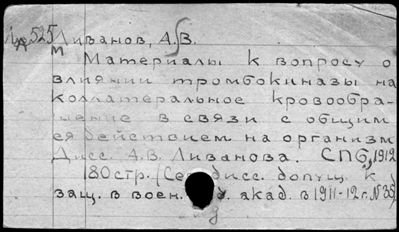 525 Ливанов, А.В.
М
Материалы к вопросу о
влиянии тромбокиназы на
коллатеральное кровообра-
щение в связи с общим
ея действием на организм
Дисс. А.В. Ливанова. СПб, 1912
180 стр. (Сер. дисс. допущ. к
защ. в воен. акад. в 1911-12 г. №35)